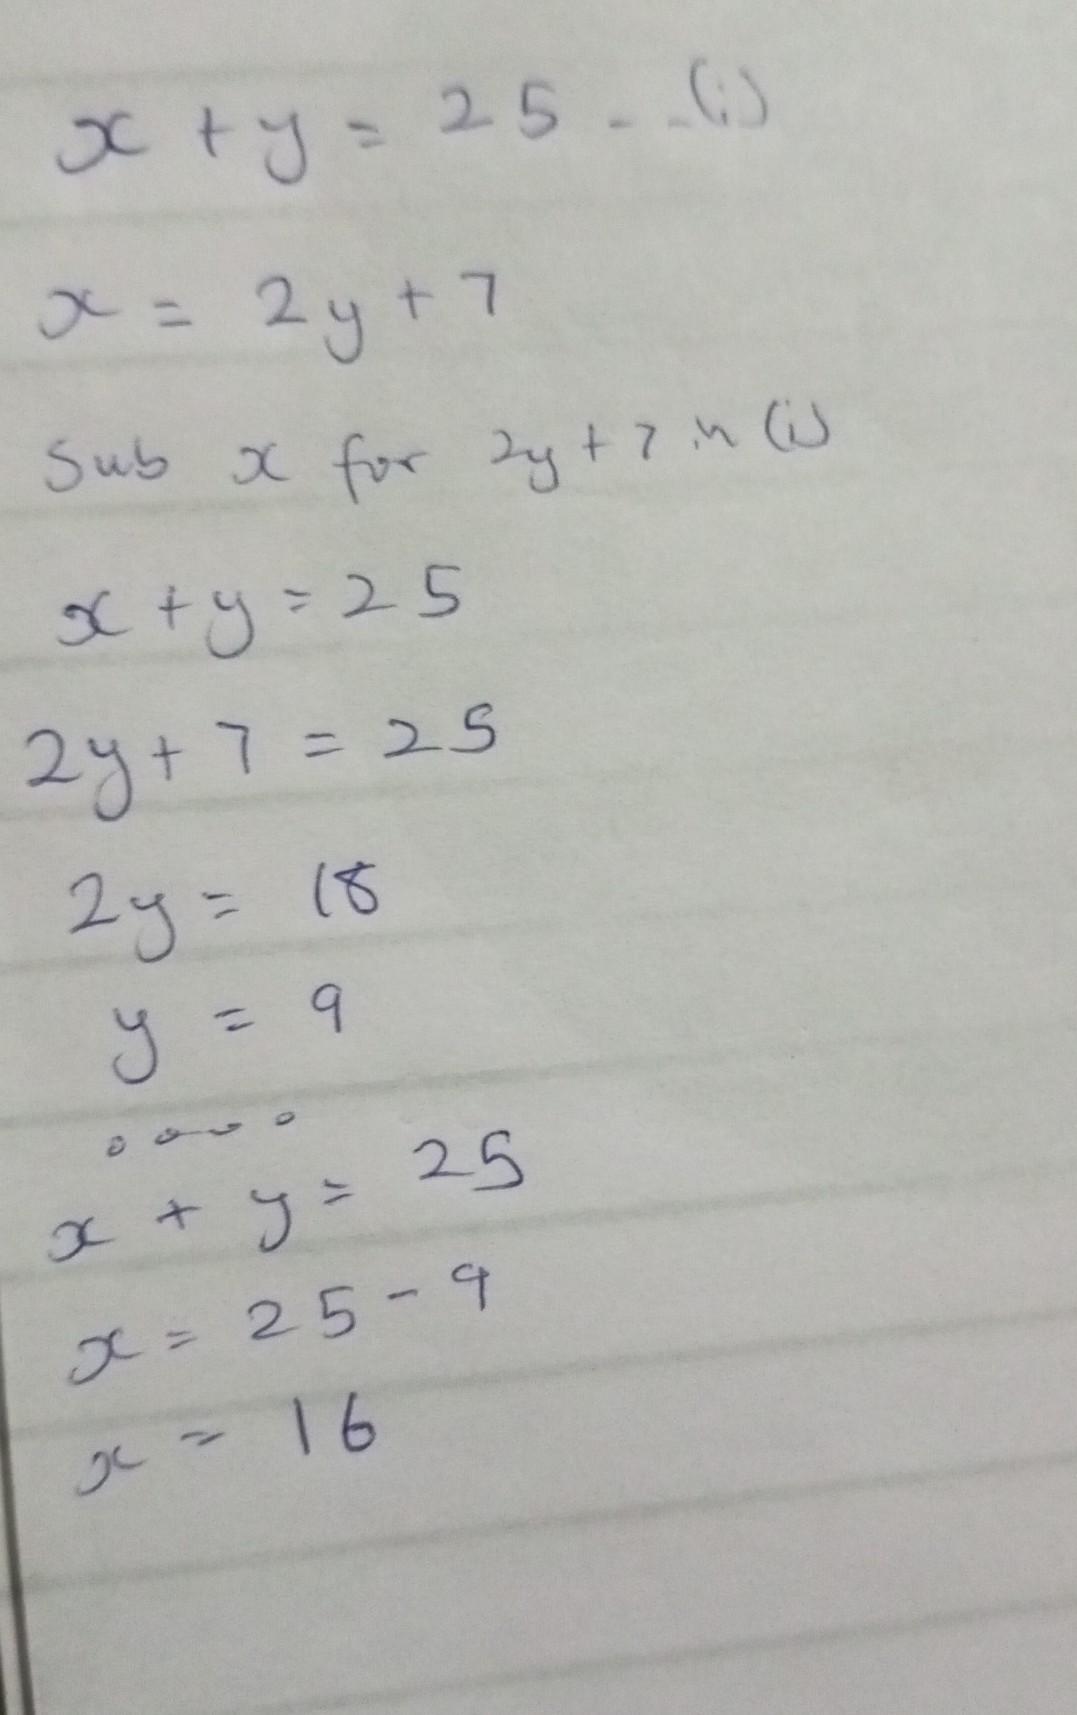 x + y = 25 - - (i)
x = 2y + 7
Sub x for 2y + 7 in (i)
x + y = 25
2y + 7 = 25
2y = 18
y = 9
x + y = 25
x = 25 - 9
x = 16